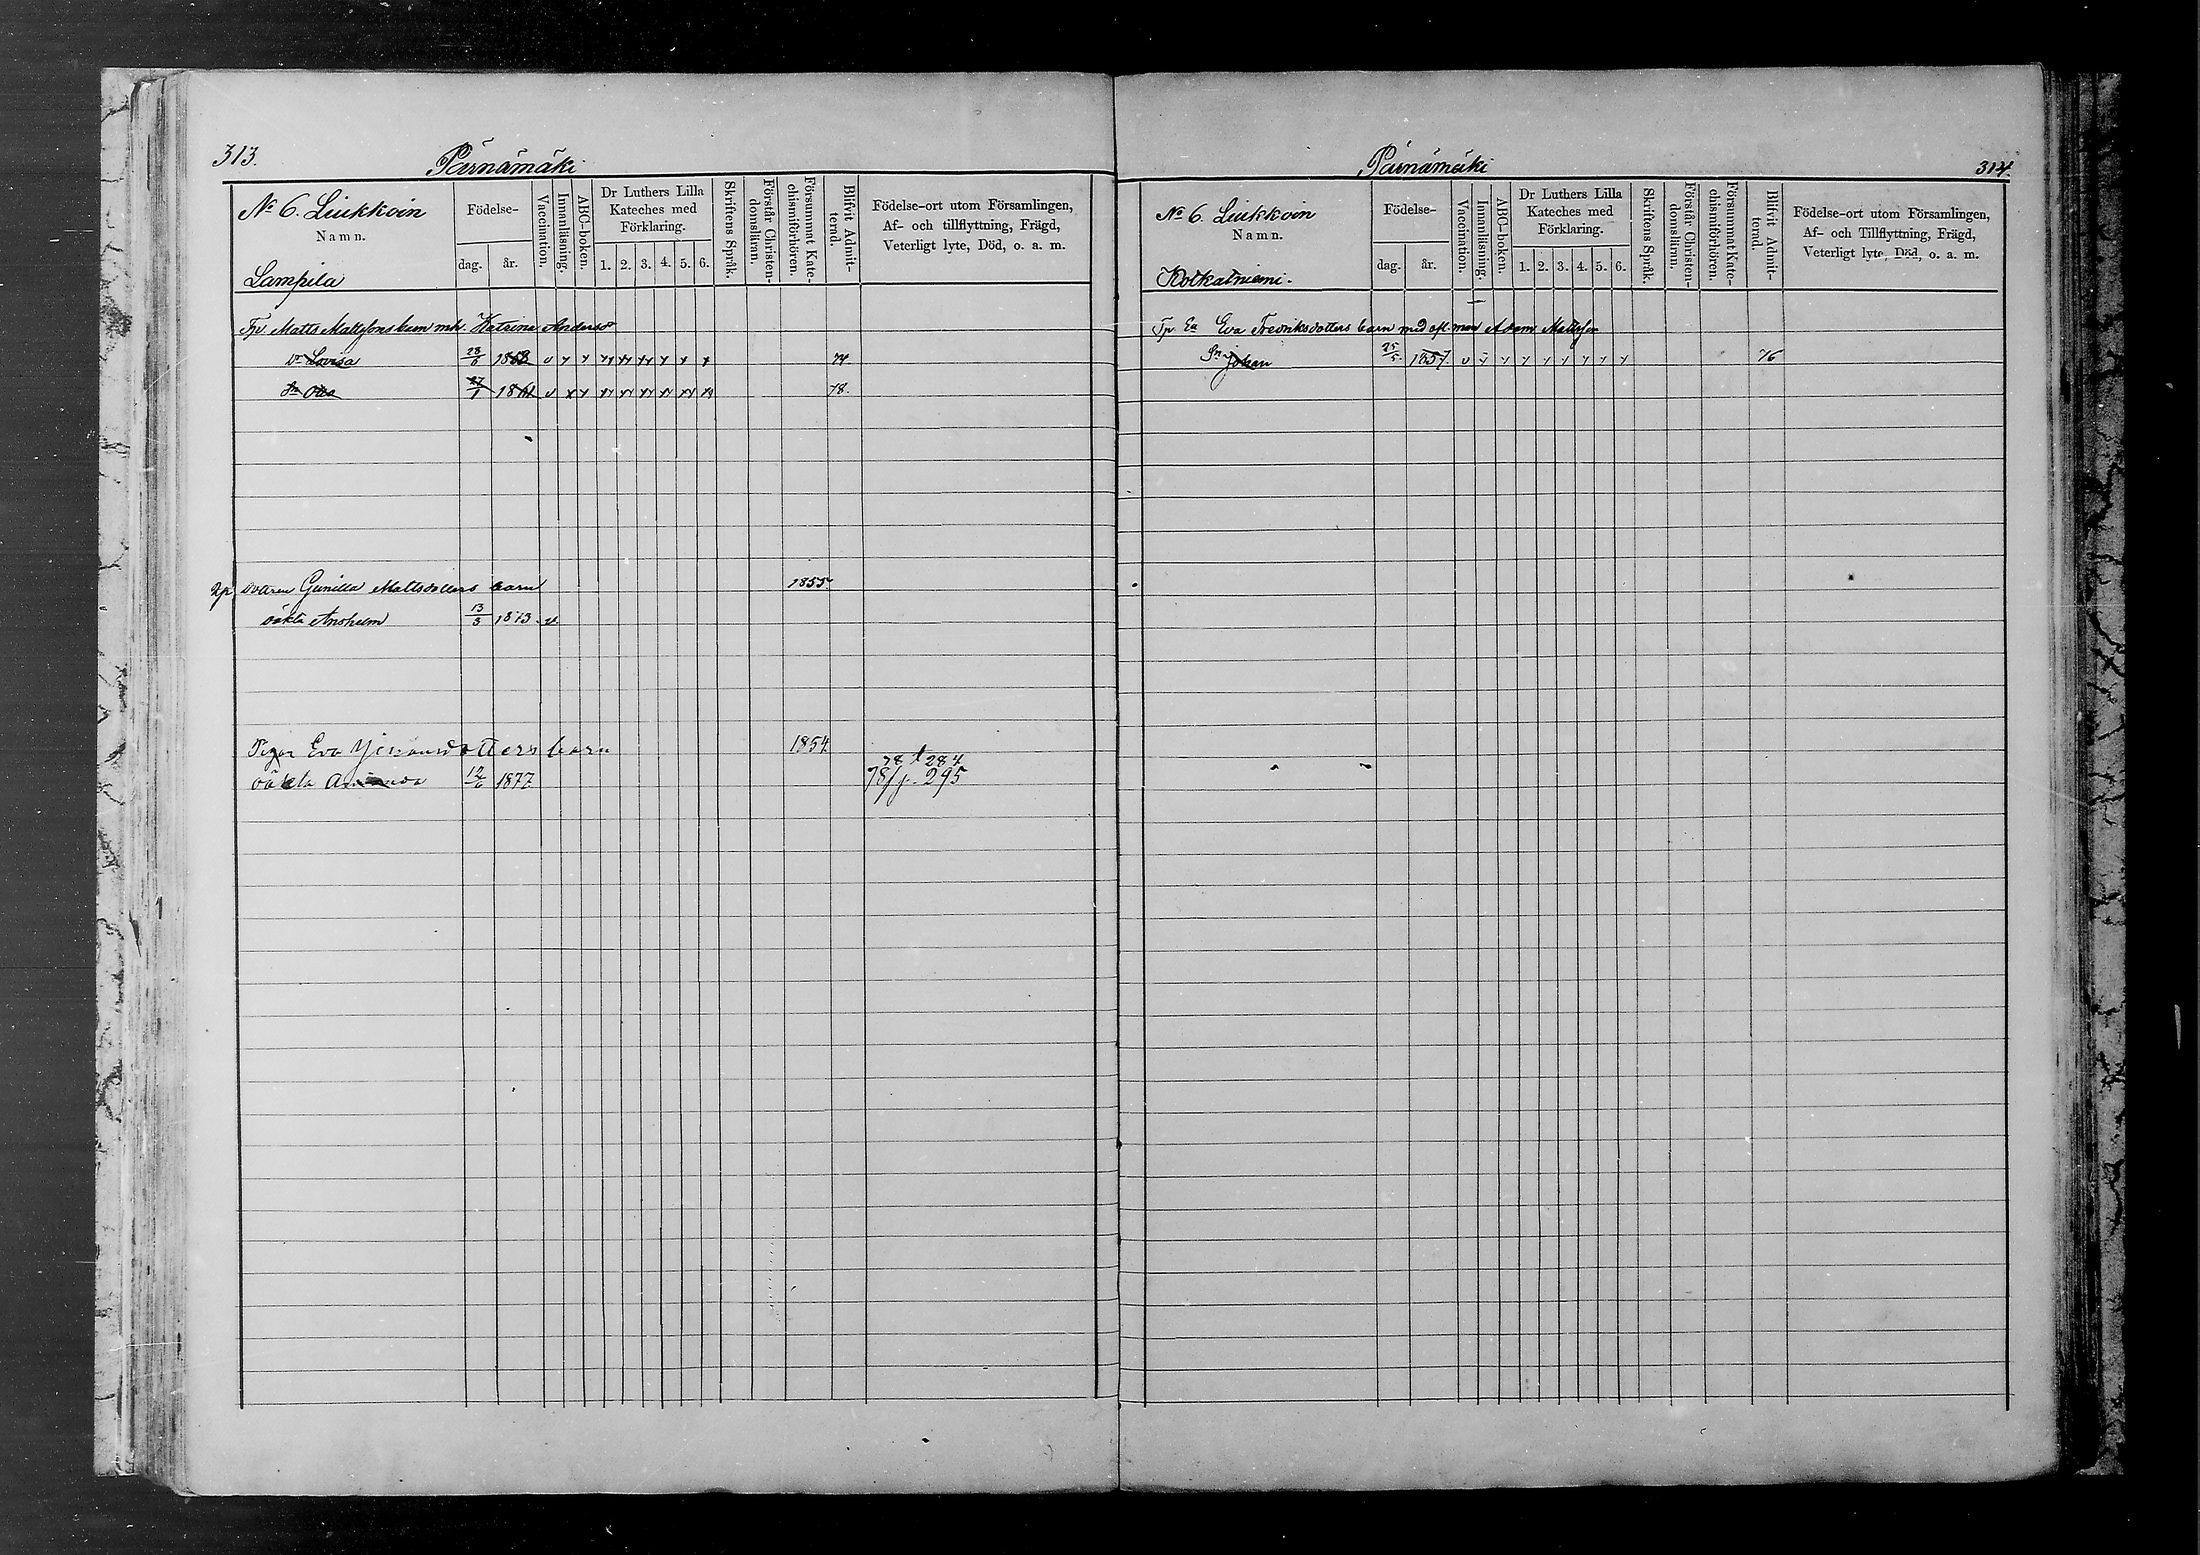 313.
Pärnämäki
No 6. Liukkoin
Namn.
Lampila
Födelse-
dag.
år.
Vaccination.
Innanläsning.
ABC-boken.
Dr Luthers Lilla
Kateches med
Förklaring.
1. 2. 3. 4. 5. 6.
Skriftens Språk.
Förstår Christen-
domslärnn.
Försummat Kate-
chismiförhören.
Blifvit Admit-
terad.
Födelse-ort utom Församlingen,
Af- och tillflyttning, Frägd,
Veterligt lyte, Död, o. a. m.
Tp Matts Mattssons barn mh. Katrina Andersd
dr Lovisa 28/6 74
sn 27/1 78.
dottren Gunilla Mattsdotters barn 1855.
oäkta Anshelm 13/3 1873. v
Pigan Eva dotters barn 1854.
oäkta Amanda 12/6 1877. 78 284
78 295
Pärnämäki
314.
No 6. Liukkoin
Namn.
Kolkalniemi.
Födelse-
dag.
år.
Vaccination.
Innanläsning.
ABC-boken.
Dr Luthers Lilla
Kateches med
Förklaring.
1. 2. 3. 4. 5. 6.
Skriftens Språk.
Förstår Christen-
domslärnn.
Försummat Kate-
chismiförhören.
Blifvit Admit-
terad.
Födelse-ort utom Församlingen,
Af- och Tillflyttning, Frägd,
Veterligt lyte, Död, o. a. m.
Tp Ea Eva Fredriksdotters barn med afl. man Adam Mattsson
Sn Johan 25/5. 1857. 76